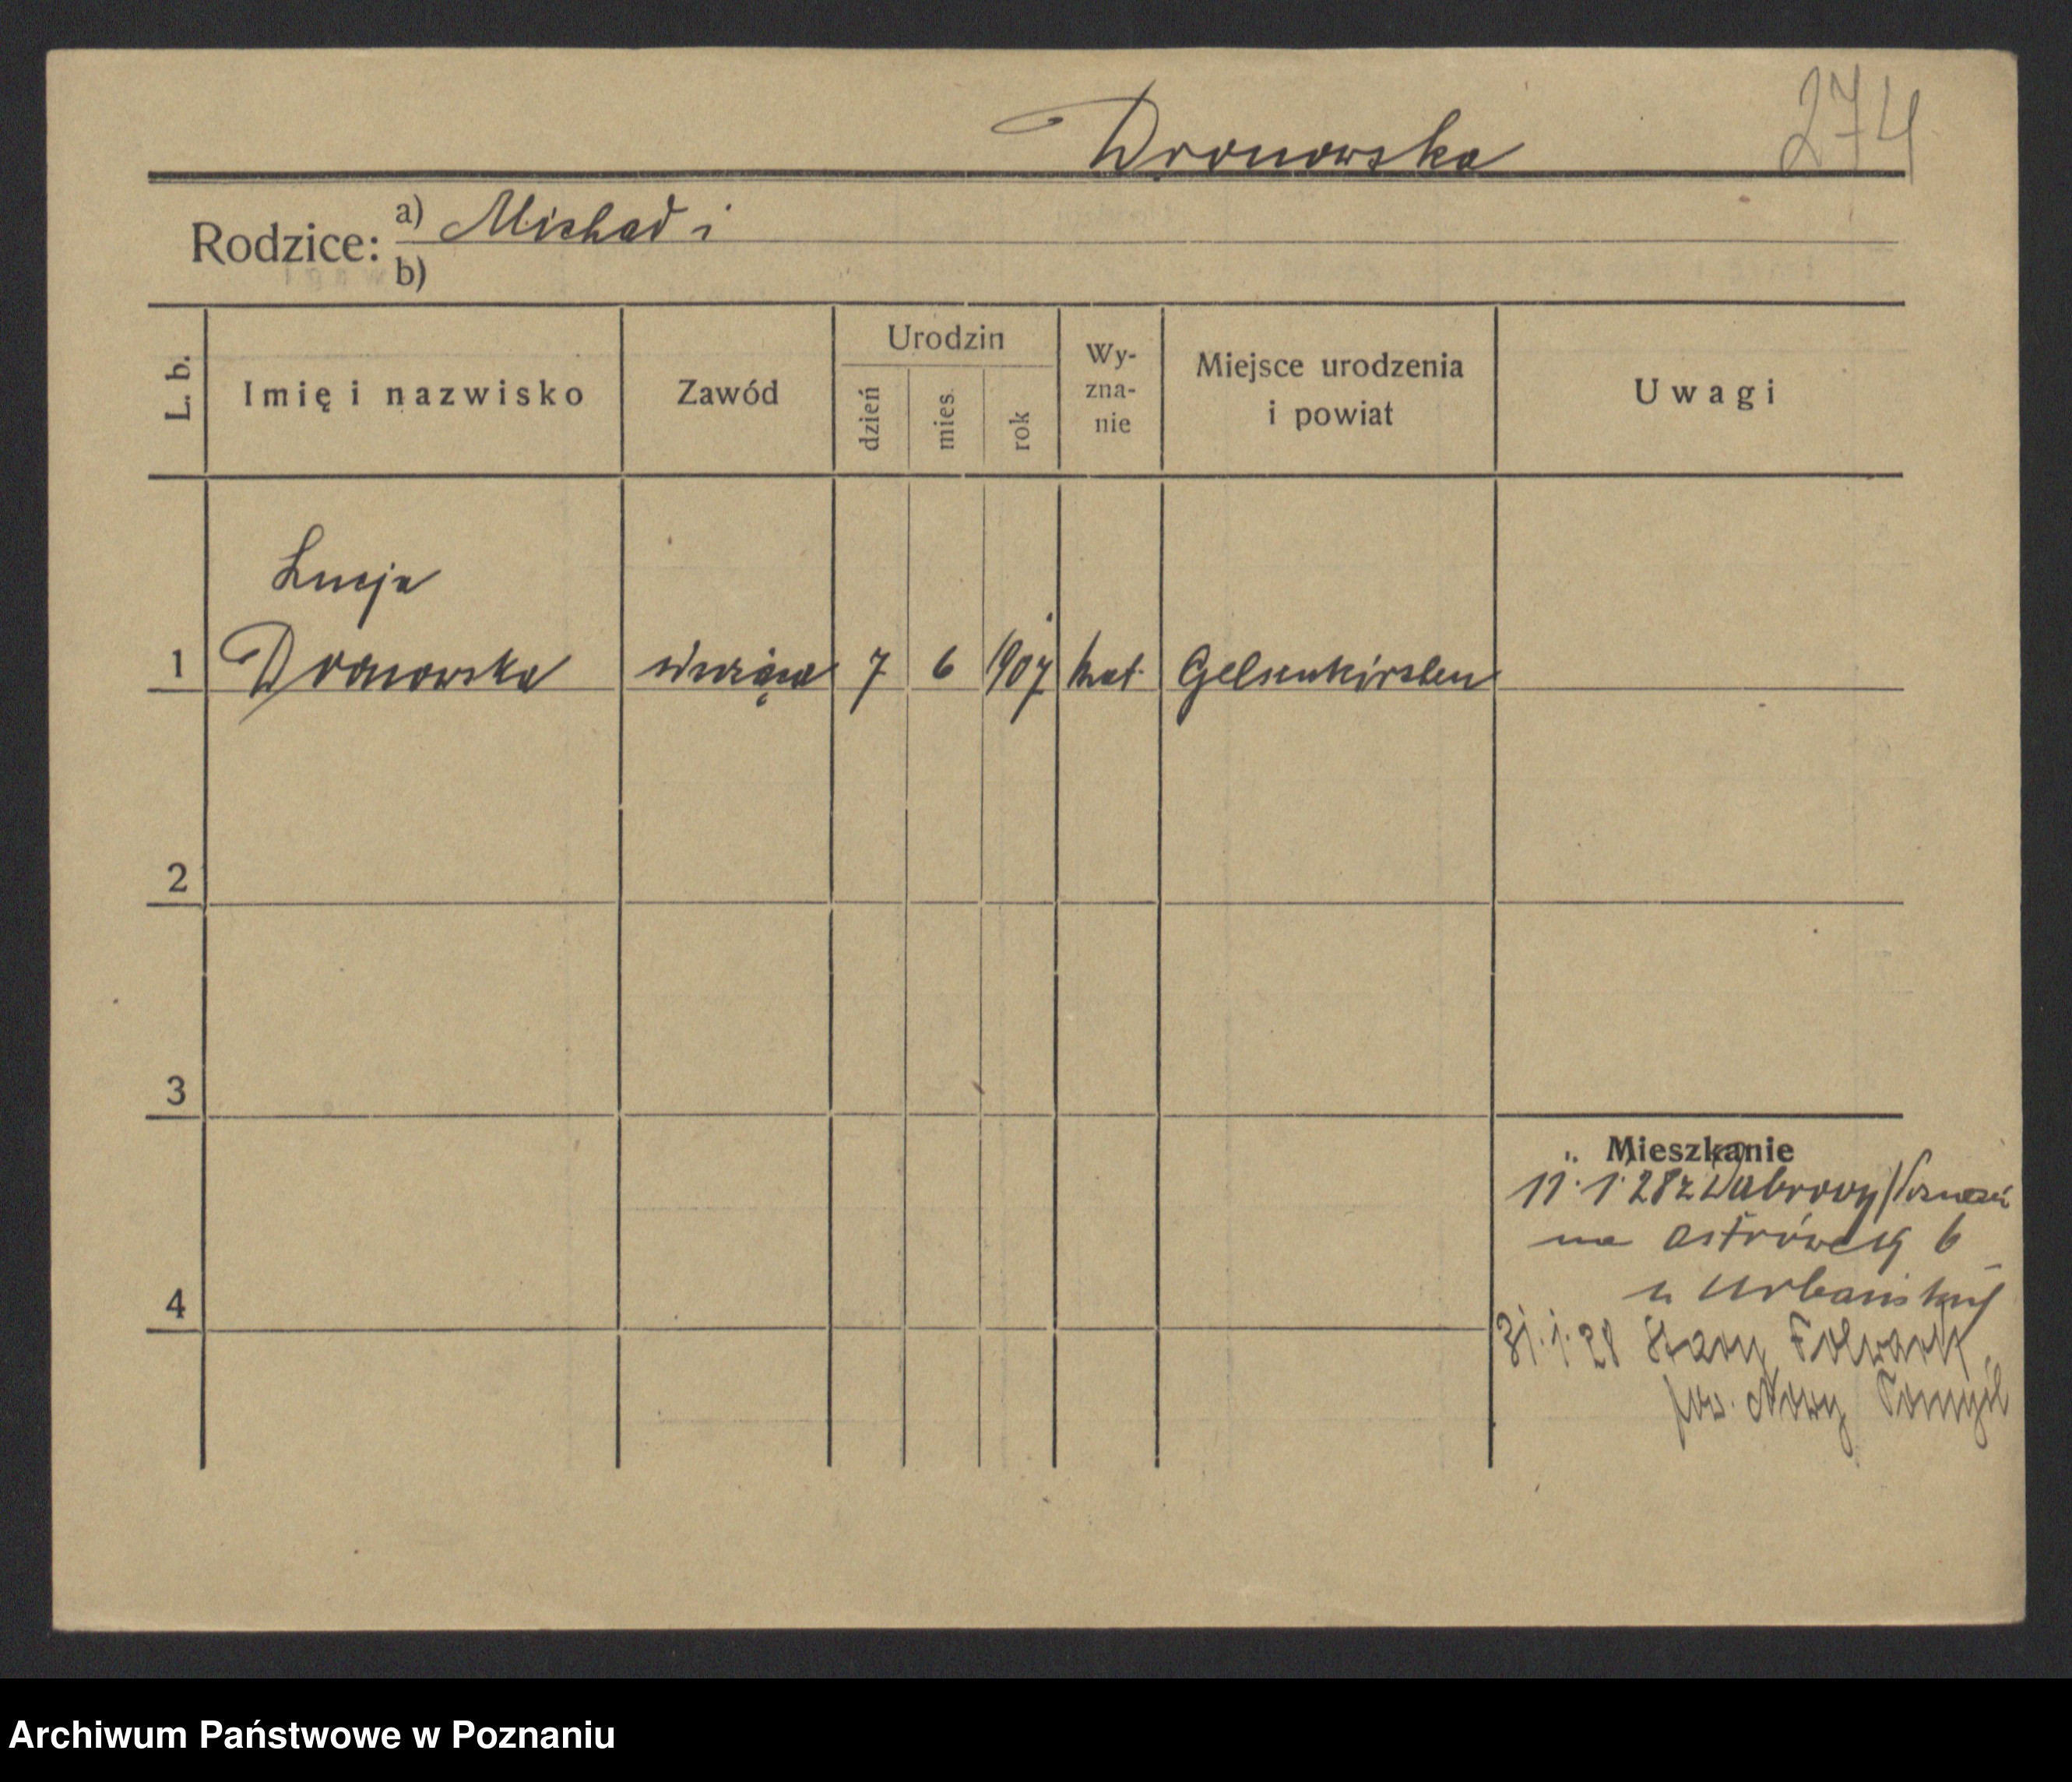 Dronowska
274
Rodzice: a) Michał i
b)
L. b.
Imię i nazwisko
Zawód
Urodzin
dzień
mies.
rok
Wy-
zna-
nie
Miejsce urodzenia
i powiat
Uwagi
Lucja
1 Dronowska służąca 7 6 1907 kat. Gelsenkirchen
2
3
4
Mieszkanie
11.1.28 z Dąbrowy/Poznań
na Ostrówek 6
u Urbańskiej
31.1.28 Stary Folwark
pow. Nowy Tomyśl
Archiwum Państwowe w Poznaniu